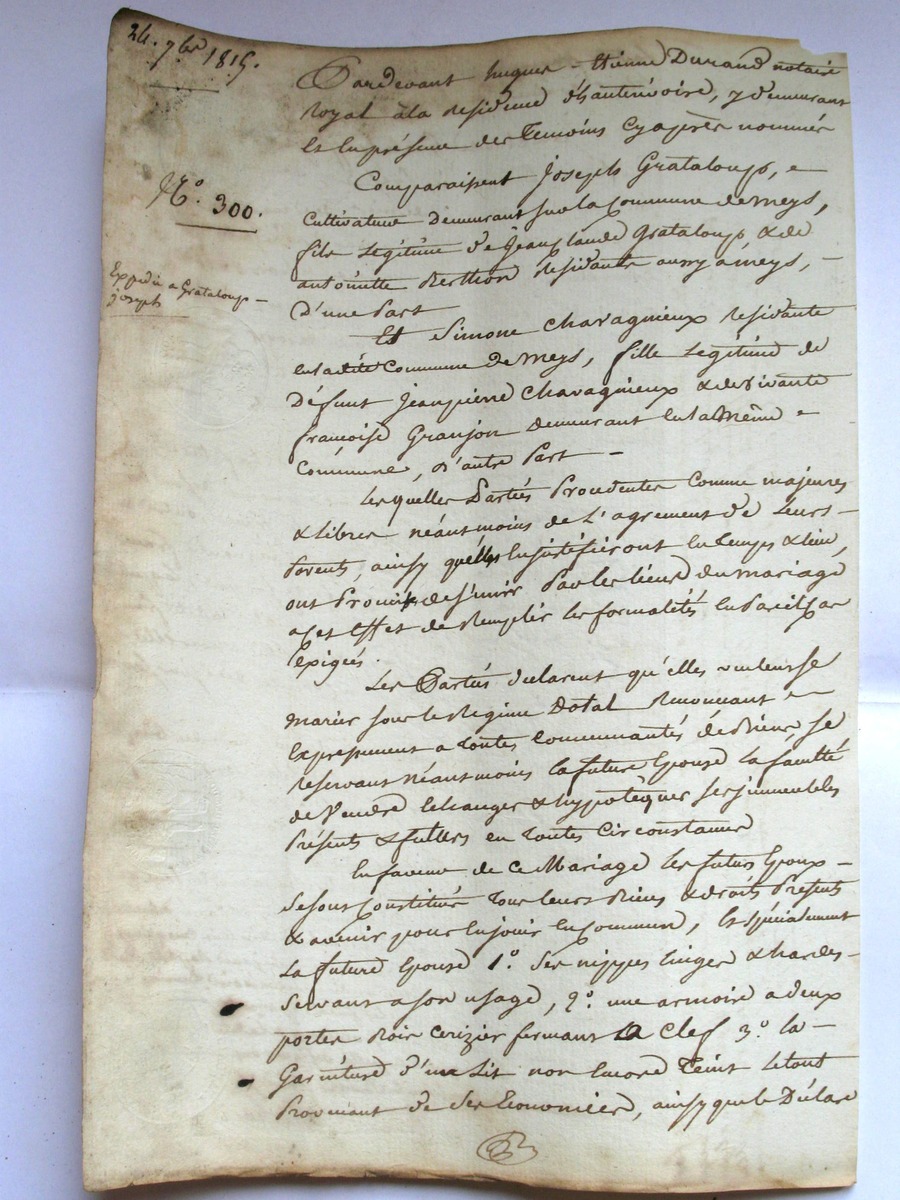 24. 7bre 1815.
N.o 300.
Expédié a Grataloup
joseph
Pardevant hugues - Etienne Durand notaire
Royal a la Residence d'hauterivoire, y demeurant
Et En présence des Temoins Cy après nommés
Comparaissent Joseph Grataloup,
Cultivateur Demeurant sur la Commune de meys,
fils Legitime de Jean Claude Grataloup & de
antoinette Berthon Residants aussy a meys, -
D'une Part
Et Simone Chavagnieux Residante
en ladite Commune de meys, fille Legitime de
Défunt Jean pierre Chavagnieux & de vivante
françoise Granjon demeurant en la Même
Commune, D'autre Part -
Les quelles Parties Procedentes Comme majeures
& Libres néantmoins de L'agrement de Leurs -
Parents, ainsy qu'elles En justifieront En Temps & lieu,
ont Promis de s'unir Par les liens du mariage
a Cet Effet de Remplir les formalités En Pareil Cas
Exigées.
Les Parties declarent qu'elles veulent se
Marier sous le Régime Dotal Renonceant
Expressement a Toutes Communautés de Biens, se
Reservant Néantmoins la future Epouse la faculté
de Vendre Echanger & hypotèquer ses immeubles
Présents & futurs en Toutes Circonstances
En faveur de Ce Mariage les futurs Epoux -
se sont Constitués Tous leurs Biens & droits Présents
& avenir pour En jouir En Commun, Et spécialement
La future Epouse 1.o ses nippes linges & hardes -
servant a son usage, 2.o une armoire a deux
portes Bois Cerizier fermant a Clef 3.o la -
Garniture d'un Lit non Encore Teint Le tout
Provenant de ses Economies, ainsy que le Déclare